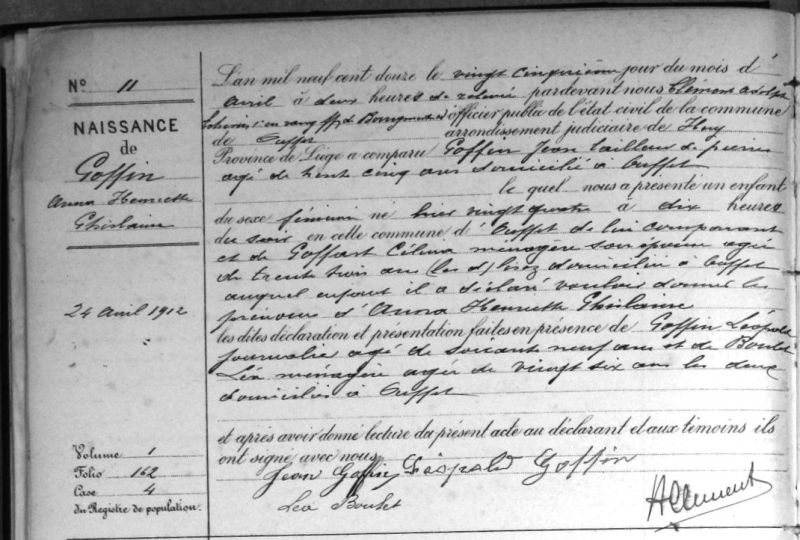 N° 11
NAISSANCE
de
Goffin
Anna Henriette
Ghislaine
24 avril 1912
Volume 1
Folio 162
Case 4
du Registre de population.
L'an mil neuf cent douze le vingt cinquième jour du mois d'
avril à deux heures de relevée pardevant nous Clément Adolphe
officier public de l'état civil de la commune
de Ouffet arrondissement judiciaire de Huy
Province de Liège a comparu Goffin Jean tailleur de pierres
agé de trente cinq ans domicilié à Ouffet
le quel nous a présenté un enfant
du sexe féminin né hier vingt quatre à dix heures
du soir en cette commune d'Ouffet de lui comparant
et de Goffart Célina ménagère son épouse agée
de trente trois ans domiciliée à Ouffet
auquel enfant il a déclaré vouloir donner les
prénoms d'Anna Henriette Ghislaine
les dites déclaration et présentation faites en présence de Goffin Léopold
journalier agé de soixante neuf ans et de Boulet
Léa ménagère agée de vingt six ans les deux
domiciliés à Ouffet
et après avoir donné lecture du présent acte au déclarant et aux témoins ils
ont signé avec nous
Jean Goffin Léopold Goffin
Léa Boulet
AClément